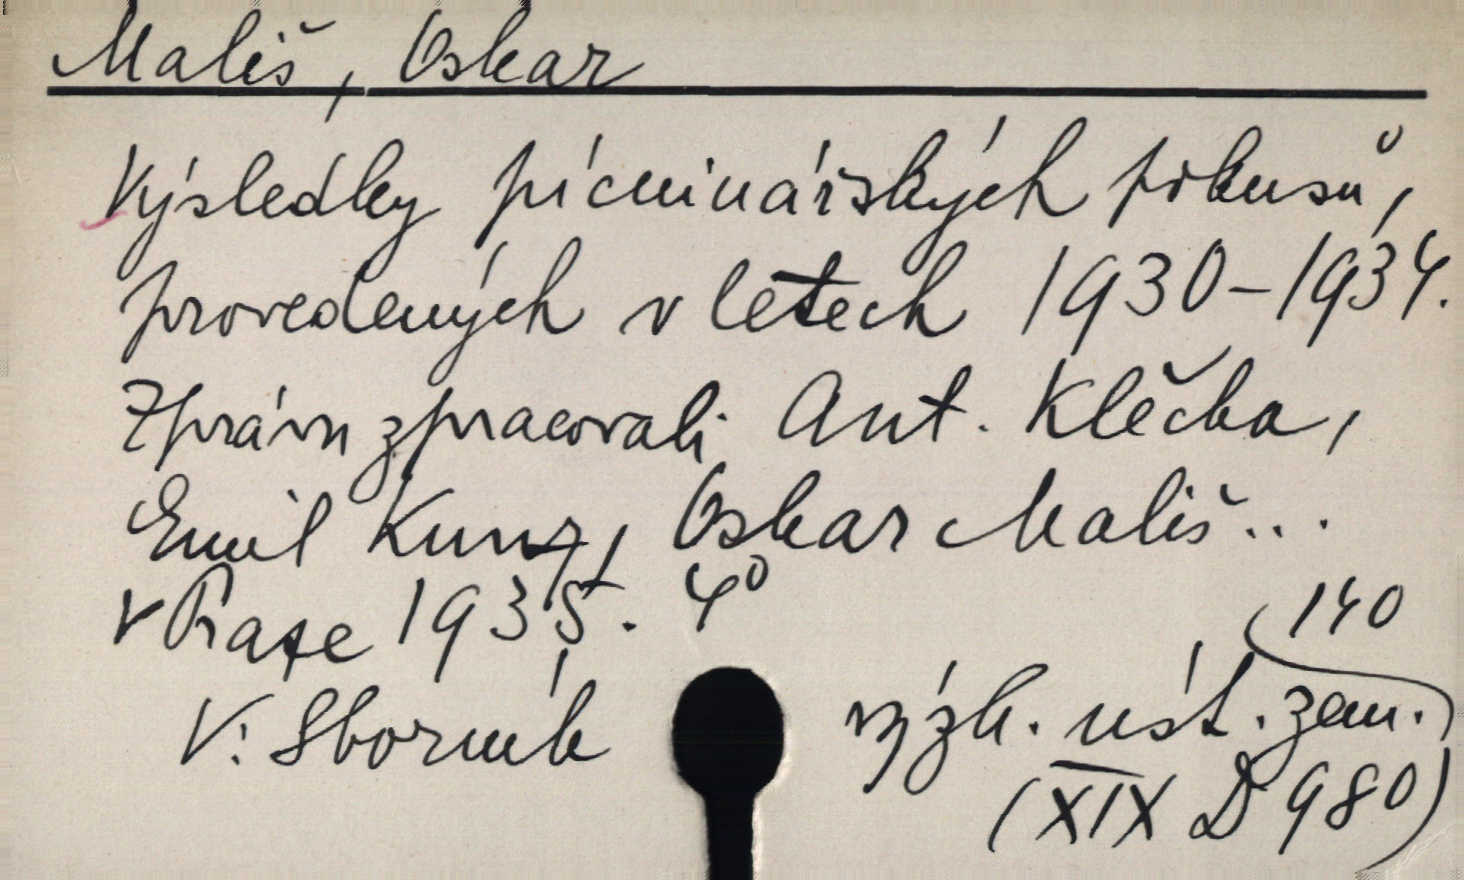 Mališ, Oskar
Výsledky pícninářských pokusů,
provedených v letech 1930-1934.
Zprávu zpracovali Ant. Klečka,
Emil Kunz, Oskar Mališ...
V Praze 1935. 4°
V: Sborník výzk. úst. zem. 140
(XIX D 980)